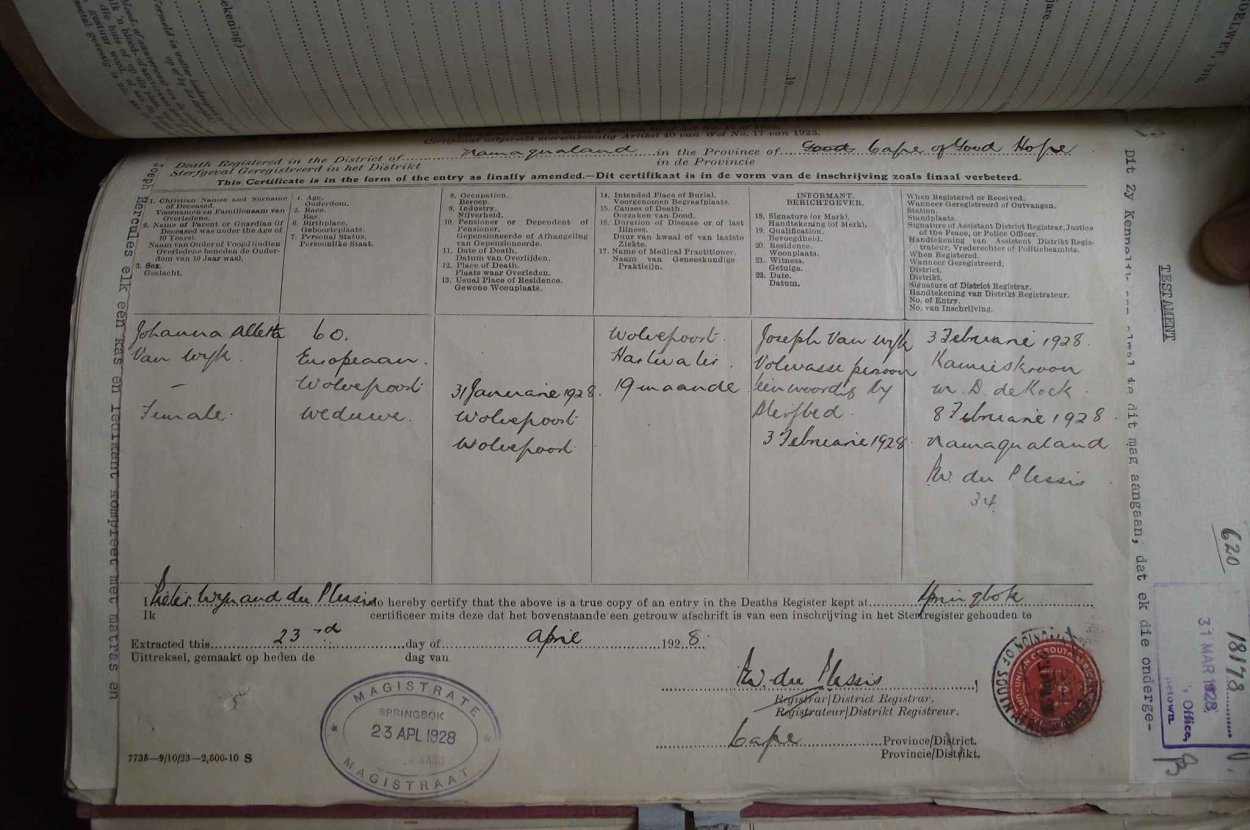 Certifikaat uitgereikt overeenkomstig Artikel 40 van Wet No. 17 van 1923.
Death Registered in the District of Namaqualand in the Province of Good Cape of Good Hope
Sterfgeval Geregistreerd in het Distrikt in de Provincie
This Certificate is in the form of the entry as finally amended.—Dit certifikaat is in de vorm van de inschrijving zoals finaal verbeterd.
1. Christian Names and Surname
of Deceased.
Voornamen en Familienaam van
Overledene.
2. Name of Parent or Guardian (if
Deceased was under the Age of
10 Years).
Naam van Ouder of Voogd (indien
Overledene beneden de Ouder-
dom van 10 Jaar was).
3. Sex.
Geslacht.
4. Age.
Ouderdom.
5. Race.
Ras.
6. Birthplace.
Geboorteplaats.
7. Personal Status.
Persoonlike Staat.
8. Occupation.
Beroep.
9. Industry.
Nijverheid.
10. Pensioner or Dependent of
Pensioner.
Gepensioneerde of Afhangeling
van Gepensioneerde.
11. Date of Death.
Datum van Overlijden.
12. Place of Death.
Plaats waar Overleden.
13. Usual Place of Residence.
Gewone Woonplaats.
14. Intended Place of Burial.
Voorgenomen Begraafplaats.
15. Causes of Death.
Oorzaken van Dood.
16. Duration of Disease or of last
Illness.
Duur van kwaal of van laatste
Ziekte.
17. Name of Medical Practitioner.
Naam van Geneeskundige
Praktisijn.
INFORMANT.
BERICHTGEVER.
18. Signature (or Mark).
Handtekening (of Merk).
19. Qualification.
Bevoegdheid.
20. Residence.
Woonplaats.
21. Witness.
Getuige.
22. Date.
Datum.
When Registered or Received.
Wanneer Geregistreerd of Ontvangen.
Station.
Standplaats.
Signature of Assistant District Registrar, Justice
of the Peace, or Police Officer.
Handtekening van Assistent Distrikt Regis-
trateur, Vrederechter of Politiebeambte.
When Registered.
Wanneer Geregistreerd.
District.
Distrikt.
Signature of District Registrar.
Handtekening van Distrikt Registrateur.
No. of Entry.
No. van Inschrijving.
Johanna Aletta
Van Wyk.
–
Female.
60.
Europeaan.
Wolvepoort
Weduwe.
31 Januarie 1928
Wolvepoort
Wolvepoort
Wolvepoort.
Hartwater
19 maande
Joseph Van Wyk
Volwasse persoon
teinwoordig by
Sterfbed.
3 Februarie 1928
3 Februarie 1928.
Kamieskroon
W. D. de Kock.
8 Februarie 1928
Namaqualand
P.W. du Plessis
34.
I Pieter Wynand du Plessis do hereby certify that the above is a true copy of an entry in the Deaths Register kept at Springbok
Ik certificeer mits deze dat het bovenstaande een getrouw afschrift is van een inschrijving in het Sterfregister gehouden te
Extracted this 23rd day of April 1928.
Uittreksel, gemaakt op heden de dag van
P.W. du Plessis
Registrar/District Registrar.
Registrateur/Distrikt Registreur.
Cape Province/District.
Provincie/Distrikt.
MAGISTRATE
SPRINGBOK
23 APL 1928
MAGISTRAAT
7735—9/10/23—2,500-10 S
Joseph Hercules elk een kas en ledikant kompleet met matras en
TESTAMENT
Dit Zy Kennelik aan almal wie dit mag aangaan; dat ek die onderge-
620
18178
31 MAR 1928
Office,